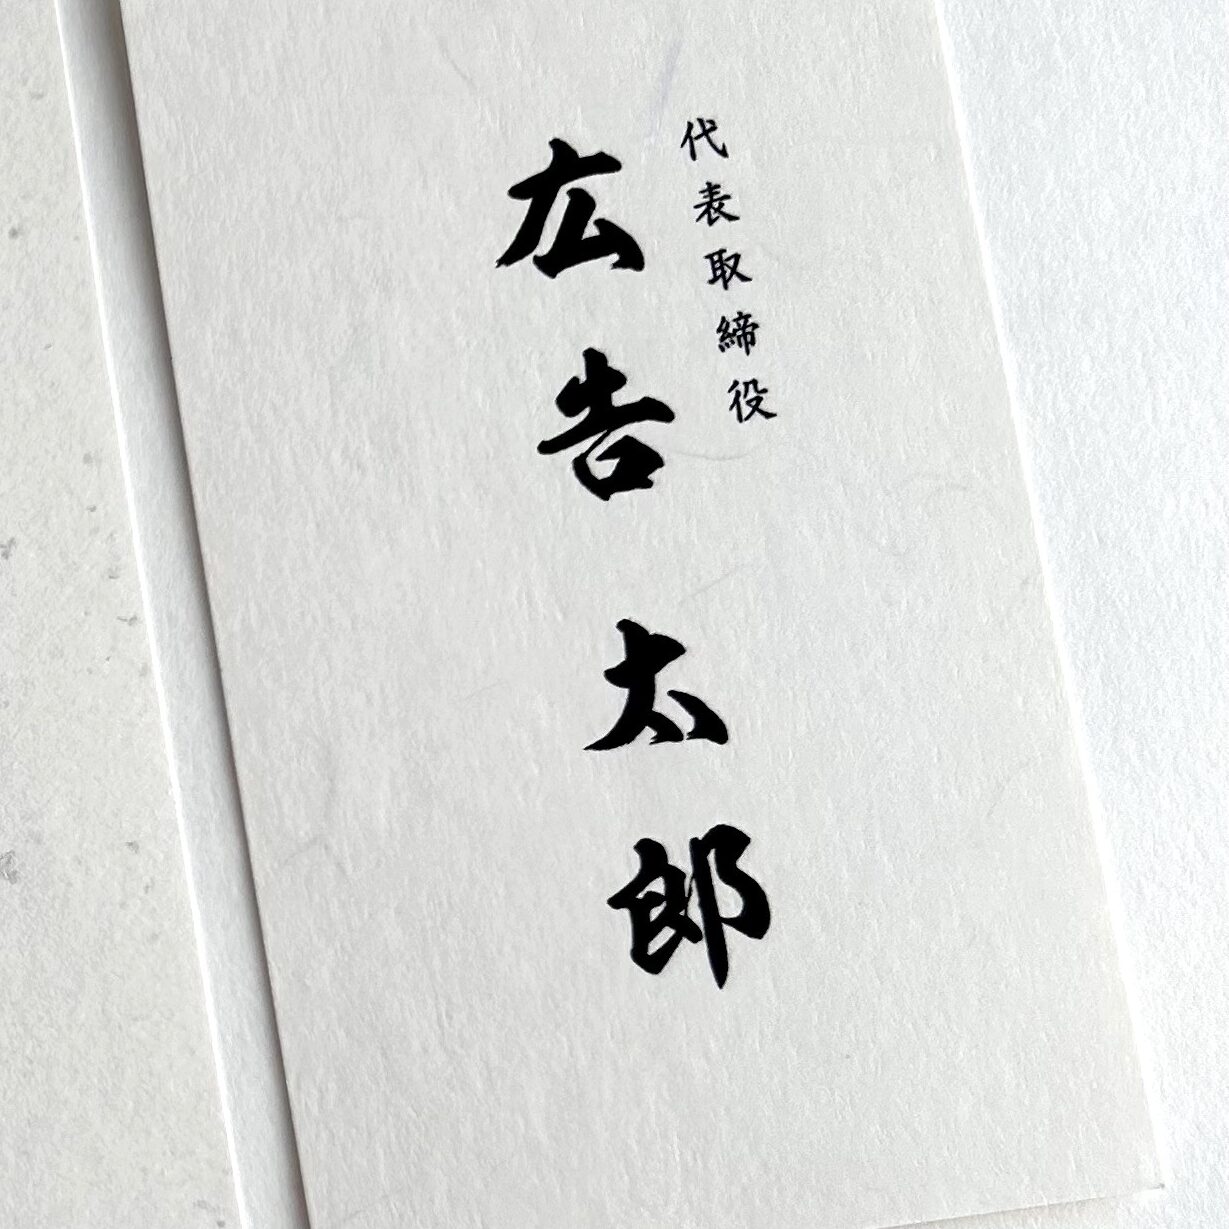 代表取締役
広告太郎